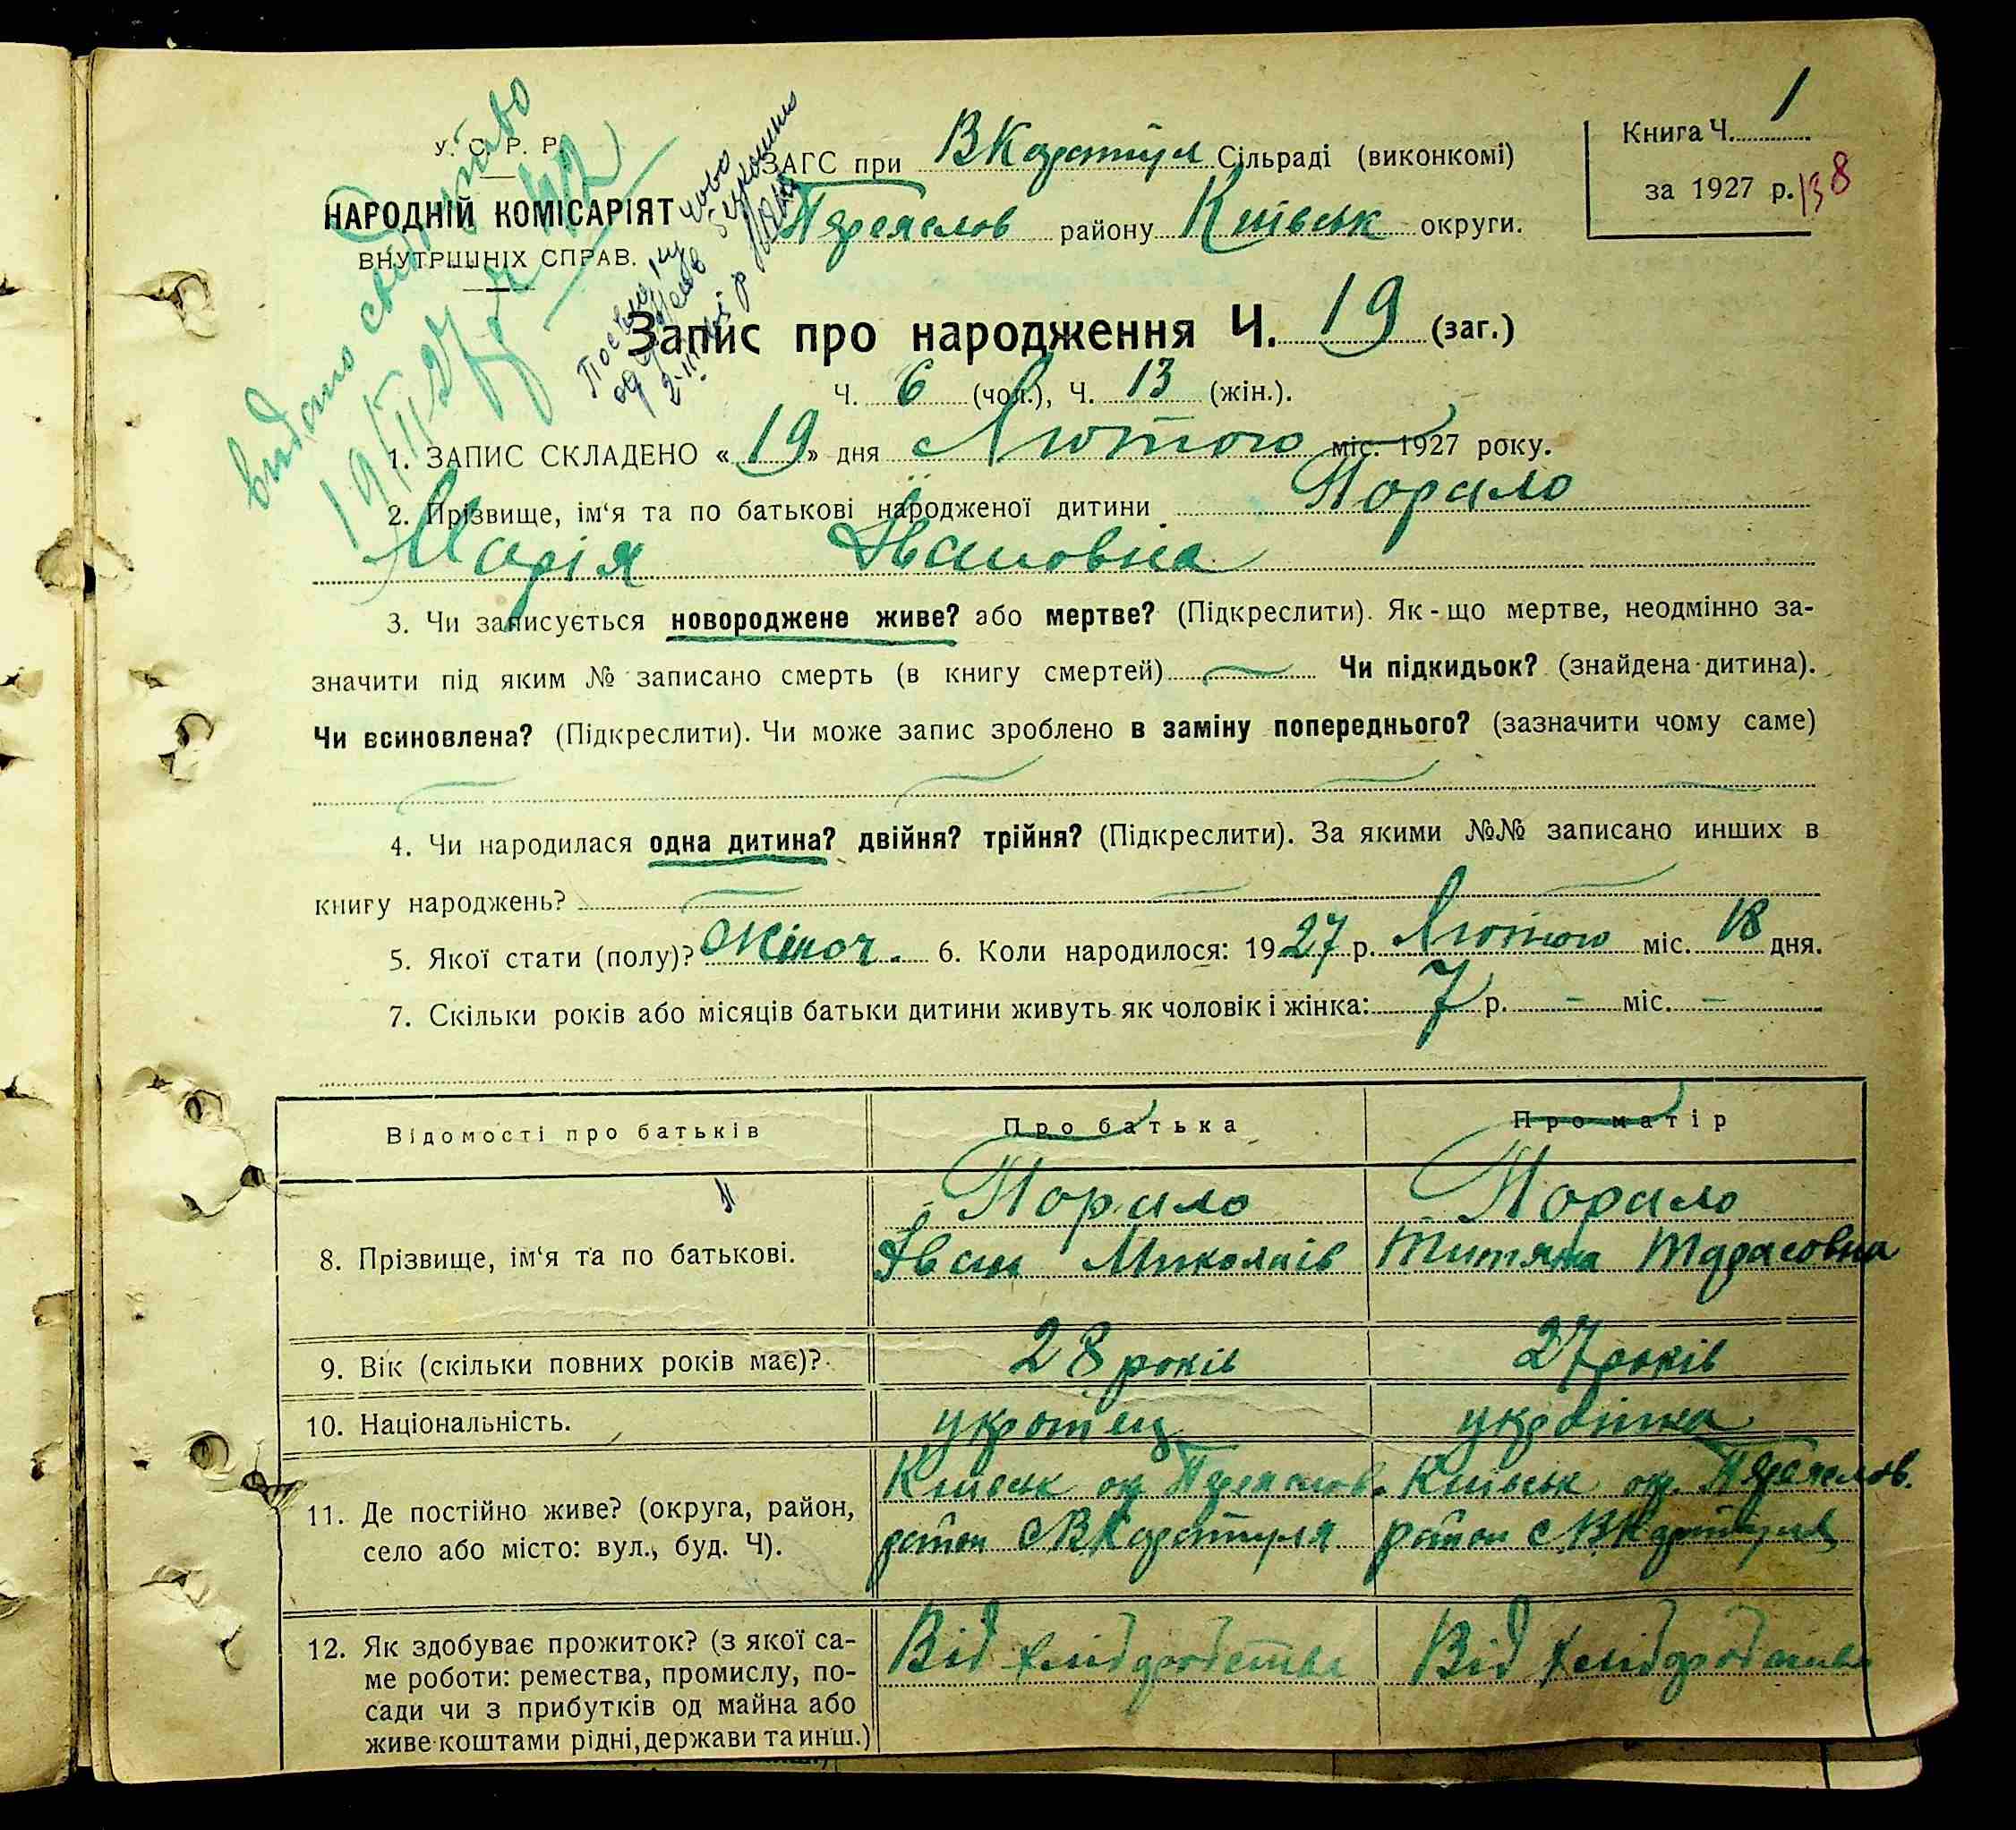 У. С. Р. Р.
НАРОДНІЙ КОМІСАРІЯТ
ВНУТРІШНІХ СПРАВ.
видано свідоцтво
19/II 27 р. № 42
ЗАГС при ВКаратул Сільраді (виконкомі)
Переяслов району Київськ округи.
Книга Ч. 1
за 1927 р. 138
Запис про народження Ч. 19 (заг.)
Ч. 6 (чол.), Ч. 13 (жін.).
1. ЗАПИС СКЛАДЕНО « 19 » дня Лютого міс. 1927 року.
2. Прізвище, ім‘я та по батькові народженої дитини Порало
Марія Івановна
3. Чи записується новороджене живе? або мертве? (Підкреслити). Як-що мертве, неодмінно за-
значити під яким № записано смерть (в книгу смертей) Чи підкидьок? (знайдена дитина).
Чи всиновлена? (Підкреслити). Чи може запис зроблено в заміну попереднього? (зазначити чому саме)
4. Чи народилася одна дитина? двійня? трійня? (Підкреслити). За якими №№ записано инших в
книгу народжень?
5. Якої стати (полу)? Жіноч. 6. Коли народилося: 1927 р. Лютого міс. 18 дня.
7. Скільки років або місяців батьки дитини живуть як чоловік і жінка: 7 р. – міс. –
Відомості про батьків Про батька Про матір
8. Прізвище, ім‘я та по батькові.
Порало
Іван Миколаів
Порало
Титяна Тарасовна
9. Вік (скільки повних років має)? 28 років 27 років
10. Національність. украінец украінка
11. Де постійно живе? (округа, район,
село або місто: вул., буд. Ч).
Київськ ок. Переяслов.
район с ВКаратуля
Київськ ок. Переяслов.
район с ВКаратуля
12. Як здобуває прожиток? (з якої са-
ме роботи: ремества, промислу, по-
сади чи з прибутків од майна або
живе коштами рідні, держави та инш.)
Від хлібробства
Від хлібробства